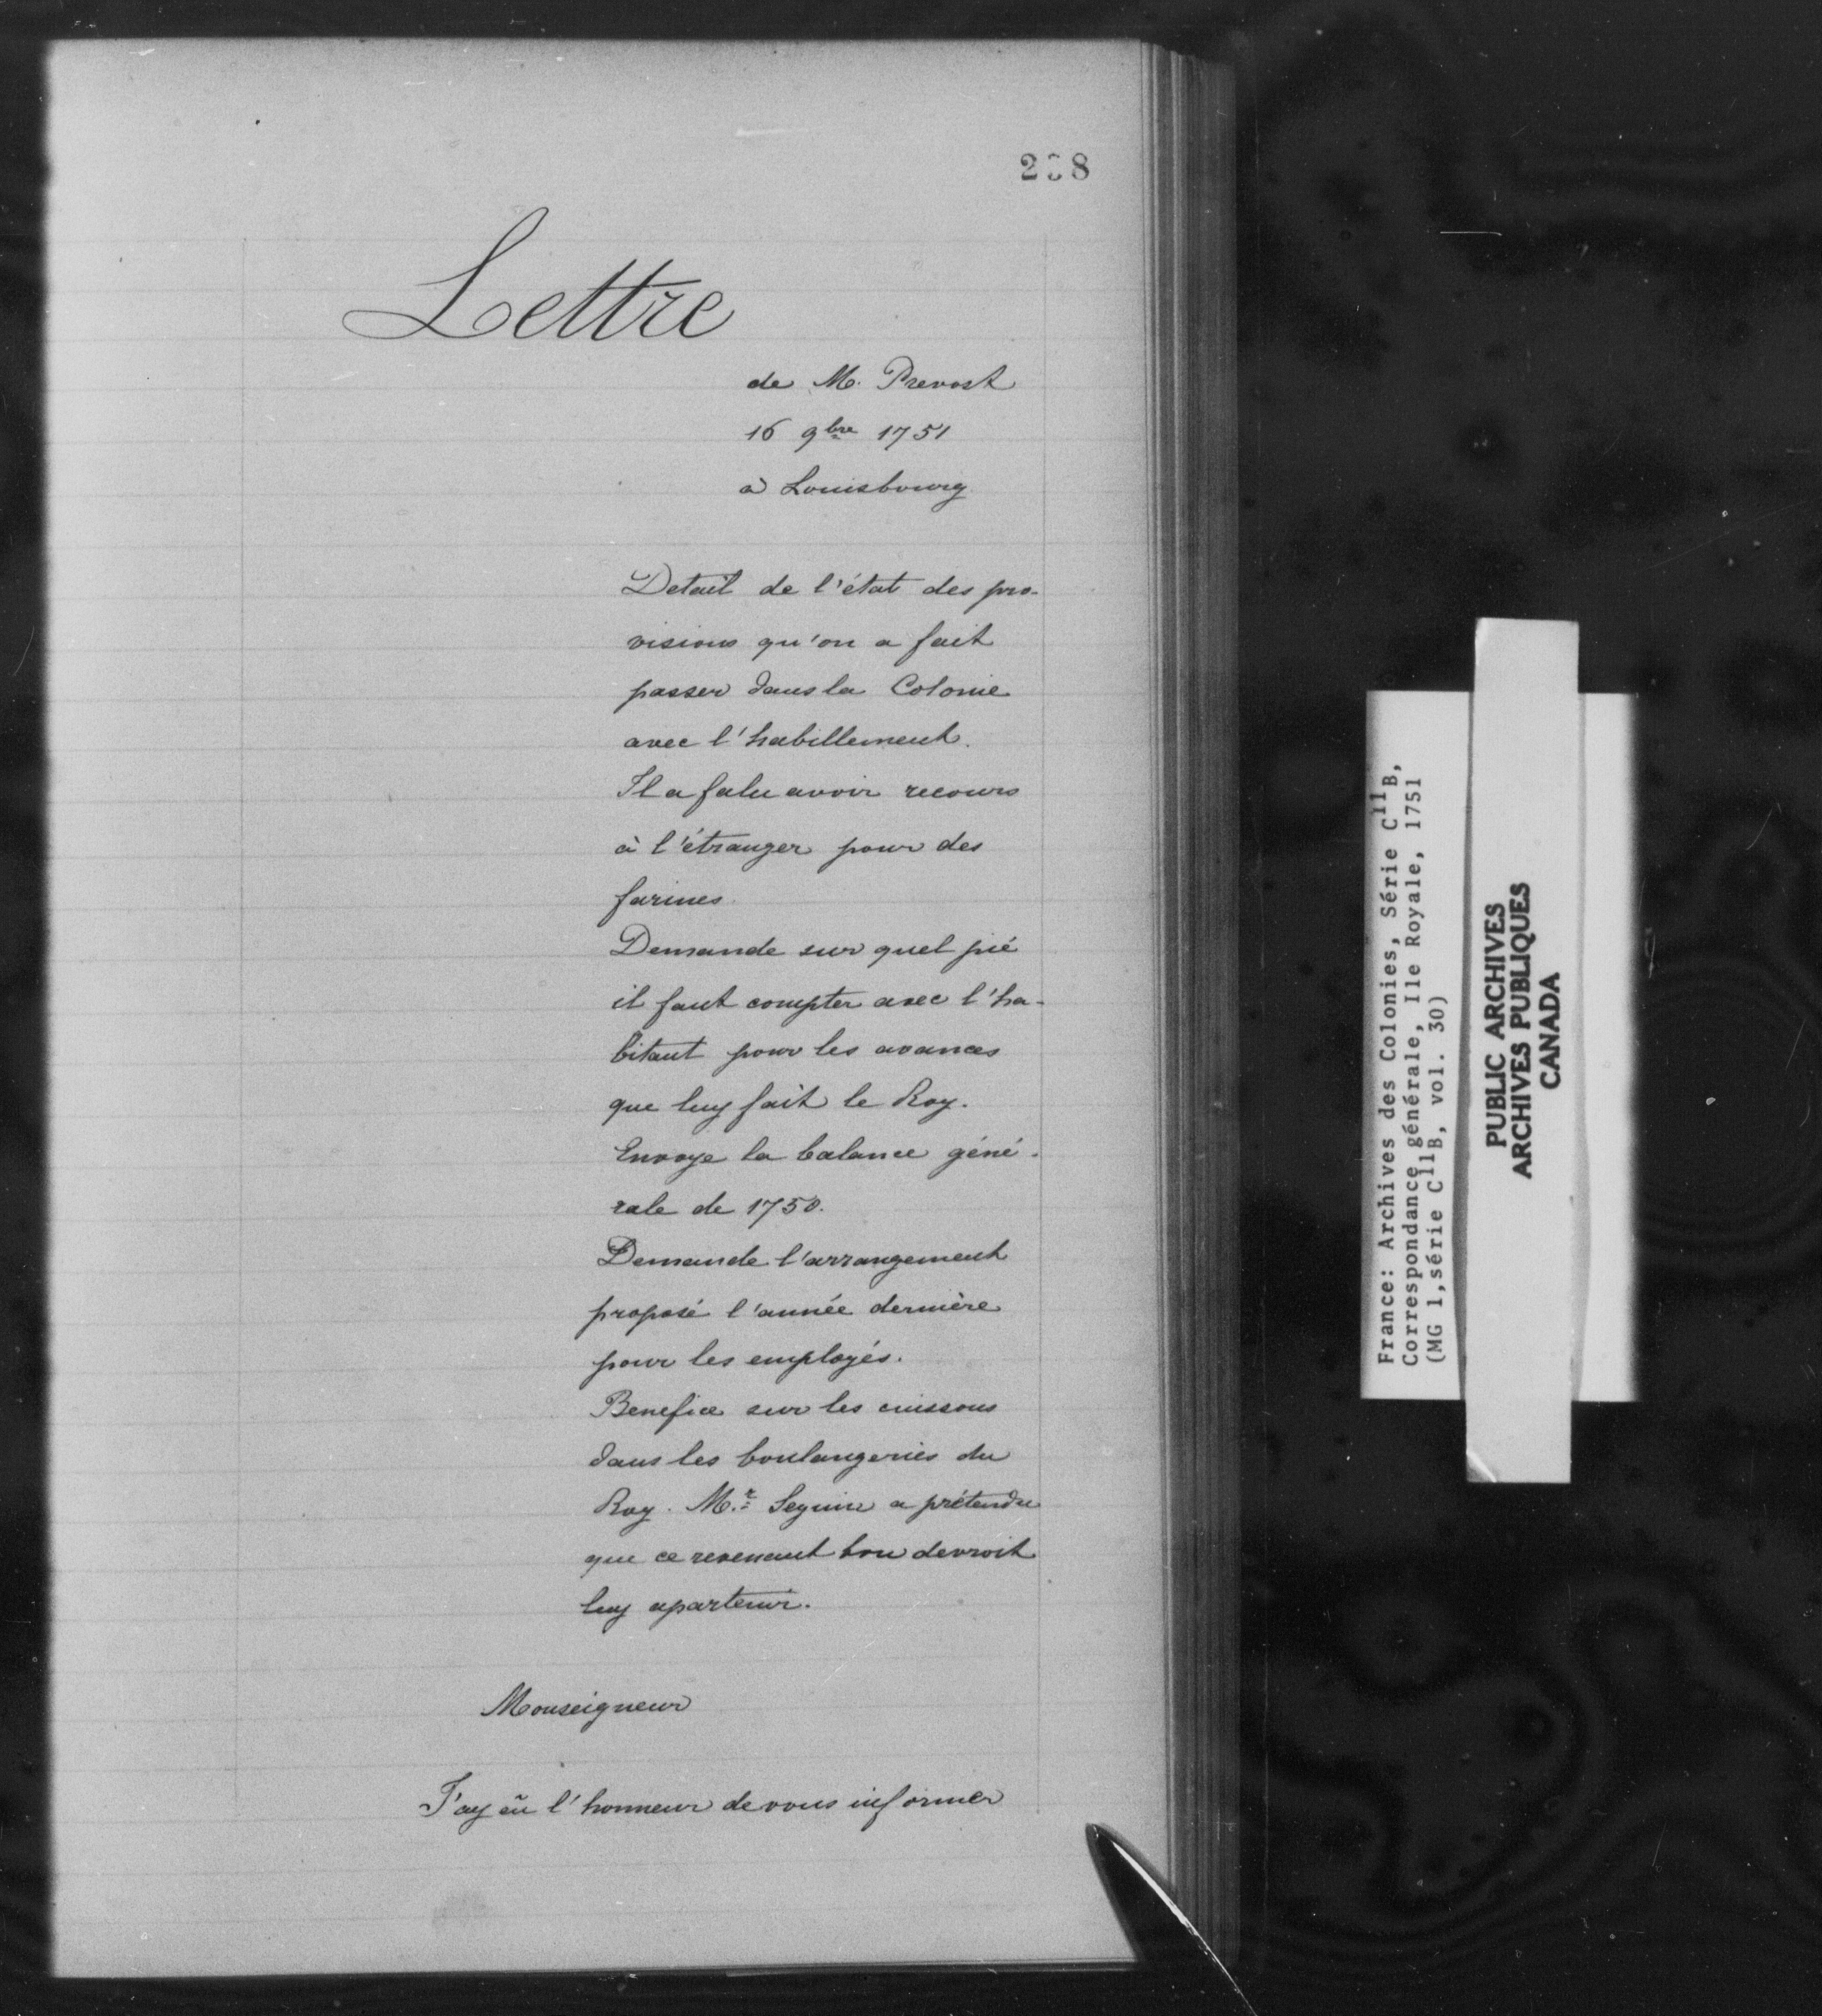 238
Lettre
de M. Prevost
16 9bre 1751
à Louisbourg
Detail de l'état des pro-
visions qu'on a fait
passer dans la Colonie
avec l'habillement.
Il a falu avoir recours
à l'étranger pour des
farines.
Demande sur quel pié
il faut compter avec l'ha-
bitant pour les avances
que luy fait le Roy.
Envoye la balance géné-
rale de 1750.
Demande l'arrangement
proposé l'année dernière
pour les employés.
Benefice sur les cuissons
dans les boulangeries du
Roy. M.r Seguin a prétendu
que ce revenant bon devroit
luy apartenir.
Monseigneur
J'ay eû l'honneur de vous informer
France: Archives des Colonies, Série C11B,
Correspondance générale, Ile Royale, 1751
(MG 1,série C11B, vol. 30)
PUBLIC ARCHIVES
ARCHIVES PUBLIQUES
CANADA